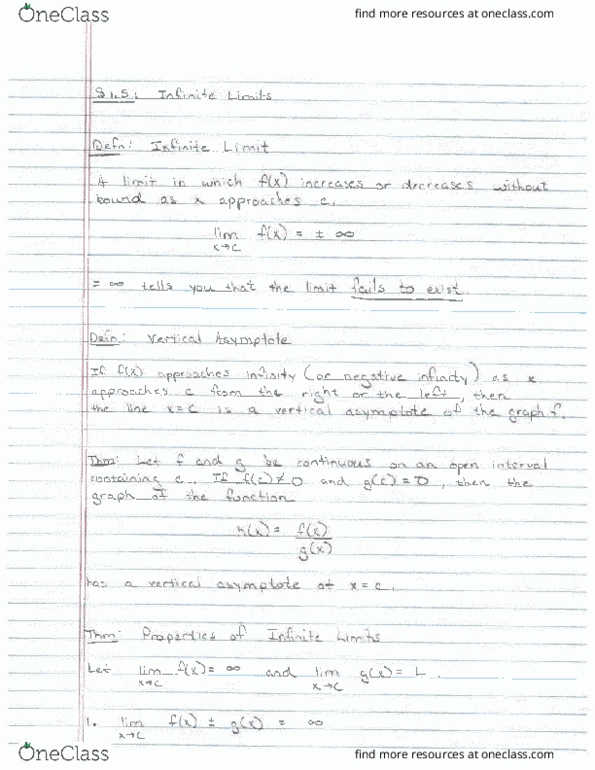 OneClass
find more resources at oneclass.com
§1.5: Infinite Limits
Defn: Infinite Limit
A limit in which f(x) increases or decreases without
bound as x approaches c.
lim f(x) = ± ∞
x→c
= ∞ tells you that the limit fails to exist.
Defn: Vertical Asymptote
If f(x) approaches infinity (or negative infinity) as x
approaches c from the right or the left, then
the line x=c is a vertical asymptote of the graph f.
Thm: Let f and g be continuous on an open interval
containing c. If f(c)≠0 and g(c)=0, then the
graph of the function
h(x) = f(x)
g(x)
has a vertical asymptote at x=c.
Thm: Properties of Infinite Limits
Let lim f(x)= ∞ and lim g(x)= L.
x→c x→c
1. lim f(x) ± g(x) = ∞
x→c
OneClass
find more resources at oneclass.com